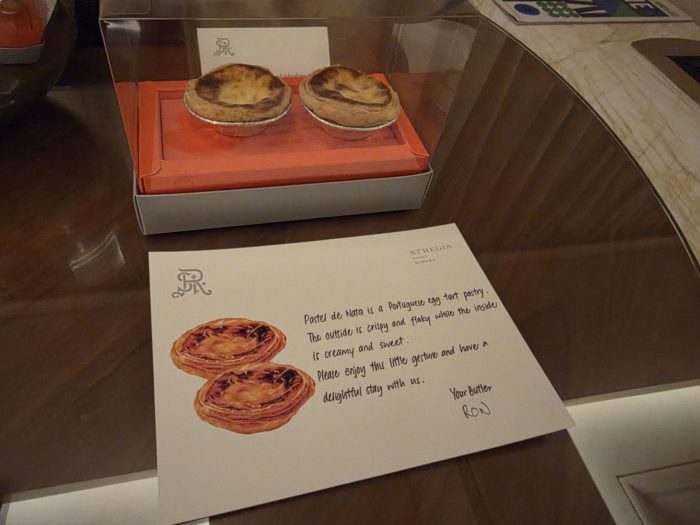 ST REGIS
Pastel de Nata is a Portuguese egg tart pastry.
The outside is crispy and flaky while the inside
is creamy and sweet.
Please enjoy this little gesture and have a
delightful stay with us.
Your Butler
RON